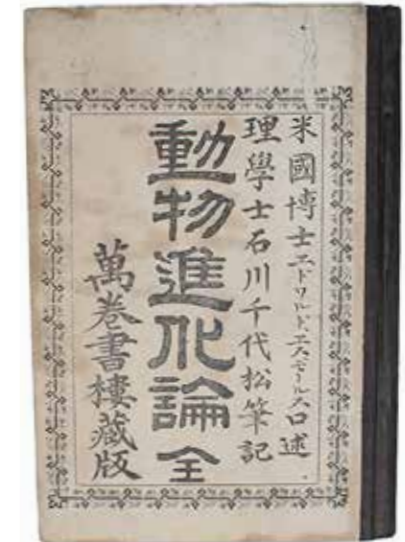 米國博士エドワルド、エス、モールス口述
理學士石川千代松筆記
動物進化論 全
萬卷書樓藏版